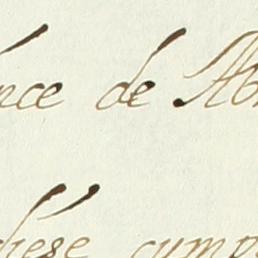 nce de
diese cump